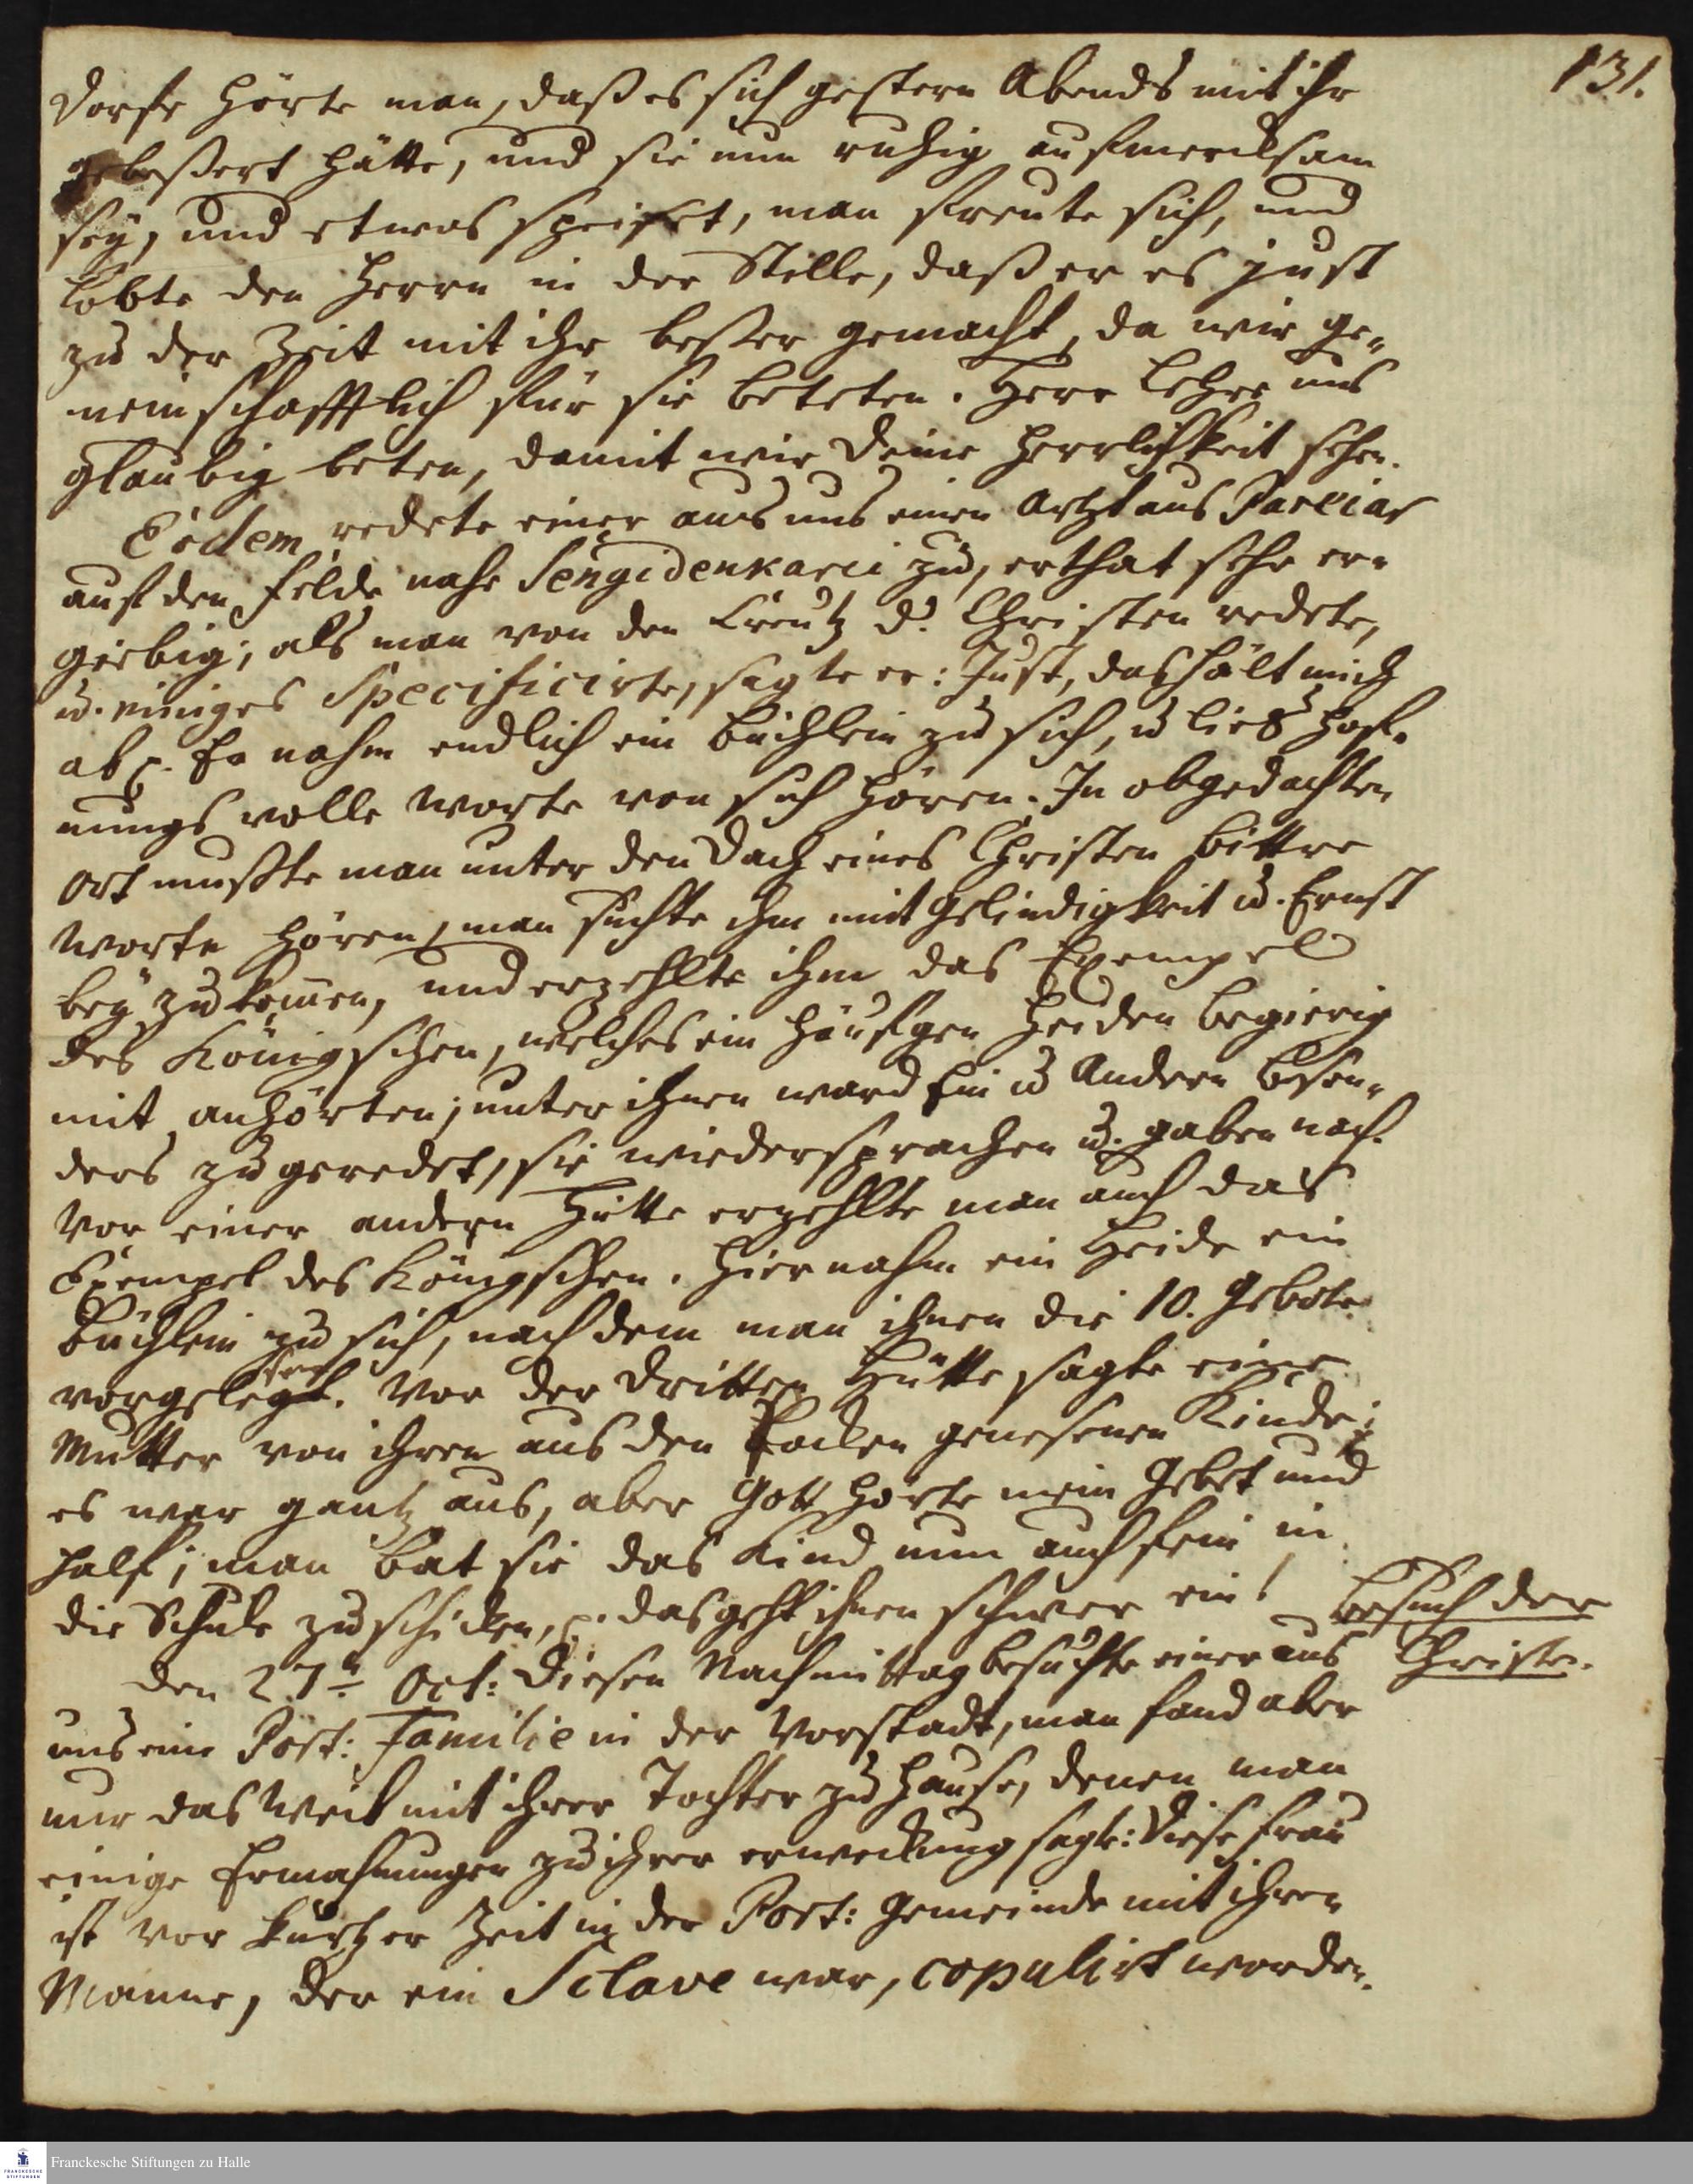 131.
Dorfe hörte man, daß es sich gestern Abends mit ihr
gebeßert hätte, und sie nun ruhig aufmercksam
sey, und etwas speiset, man freute sich, und
lobte den Herrn in der Stille, daß er es just
zu der Zeit mit ihr beßer gemacht, da wir ge-
meinschafftlich für sie beteten. Herr lehre uns
glaubig beten, damit wir deine Herrlichkeit sehen.
Eodem redete einer aus uns einen Artzt aus
auf den Felde nahe Sengidenkarei zu, er that sehr er-
giebig; als man von den Creutz d. Christen redete,
u. einiges Specificirte, sagte er: Just, das hält mich
ab p. Er nahm endlich ein Büchlein zu sich, u ließ hoff-
nungs volle Worte von sich hören. In obgedachten
Ort mußte man unter den Dach eines Christen bittre
Worte hören, man suchte ihm mit Gelindigkeit u. Ernst
bey zu kom̅en, und erzehlte ihm das Exempel
des Königschen, welches ein Häufgen Heiden begierig
mit anhörten; unter ihnen ward Ein u Andern beson-
ders zu geredet, sie wiedersprachen u. gaben nach.
Vor einer andern Hütte erzehlte man auch das
Exempel des Königschen. Hier nahm ein Heide ein
Büchlein zu sich, nach dem man ihnen die 10. Gebote
vorgelegt. Vor der dritten Hütte sagte eine
Mutter von ihren aus den Pocken genesenen Kinde;
es war gantz aus, aber Gott hörte mein Gebet und
half; man bat sie das Kind nun auch fein in
die Schule zu schicken, p. das geht ihnen schwer ein!
Besuch der
Christen.
Den 27n. Oct: Diesen Nachmittag besuchte einer aus
uns eine Port: Familie in der Vorstadt, man fand aber
nur das Weib mit ihrer Tochter zu Hause, denen man
einige Ermahnungen zu ihrer erweckung sagte: Diese Frau
ist vor kurtzer Zeit in der Port: Gemeinde mit ihren
Manne, der ein Sclave war, copulirt worden.
Franckesche Stiftungen zu Halle